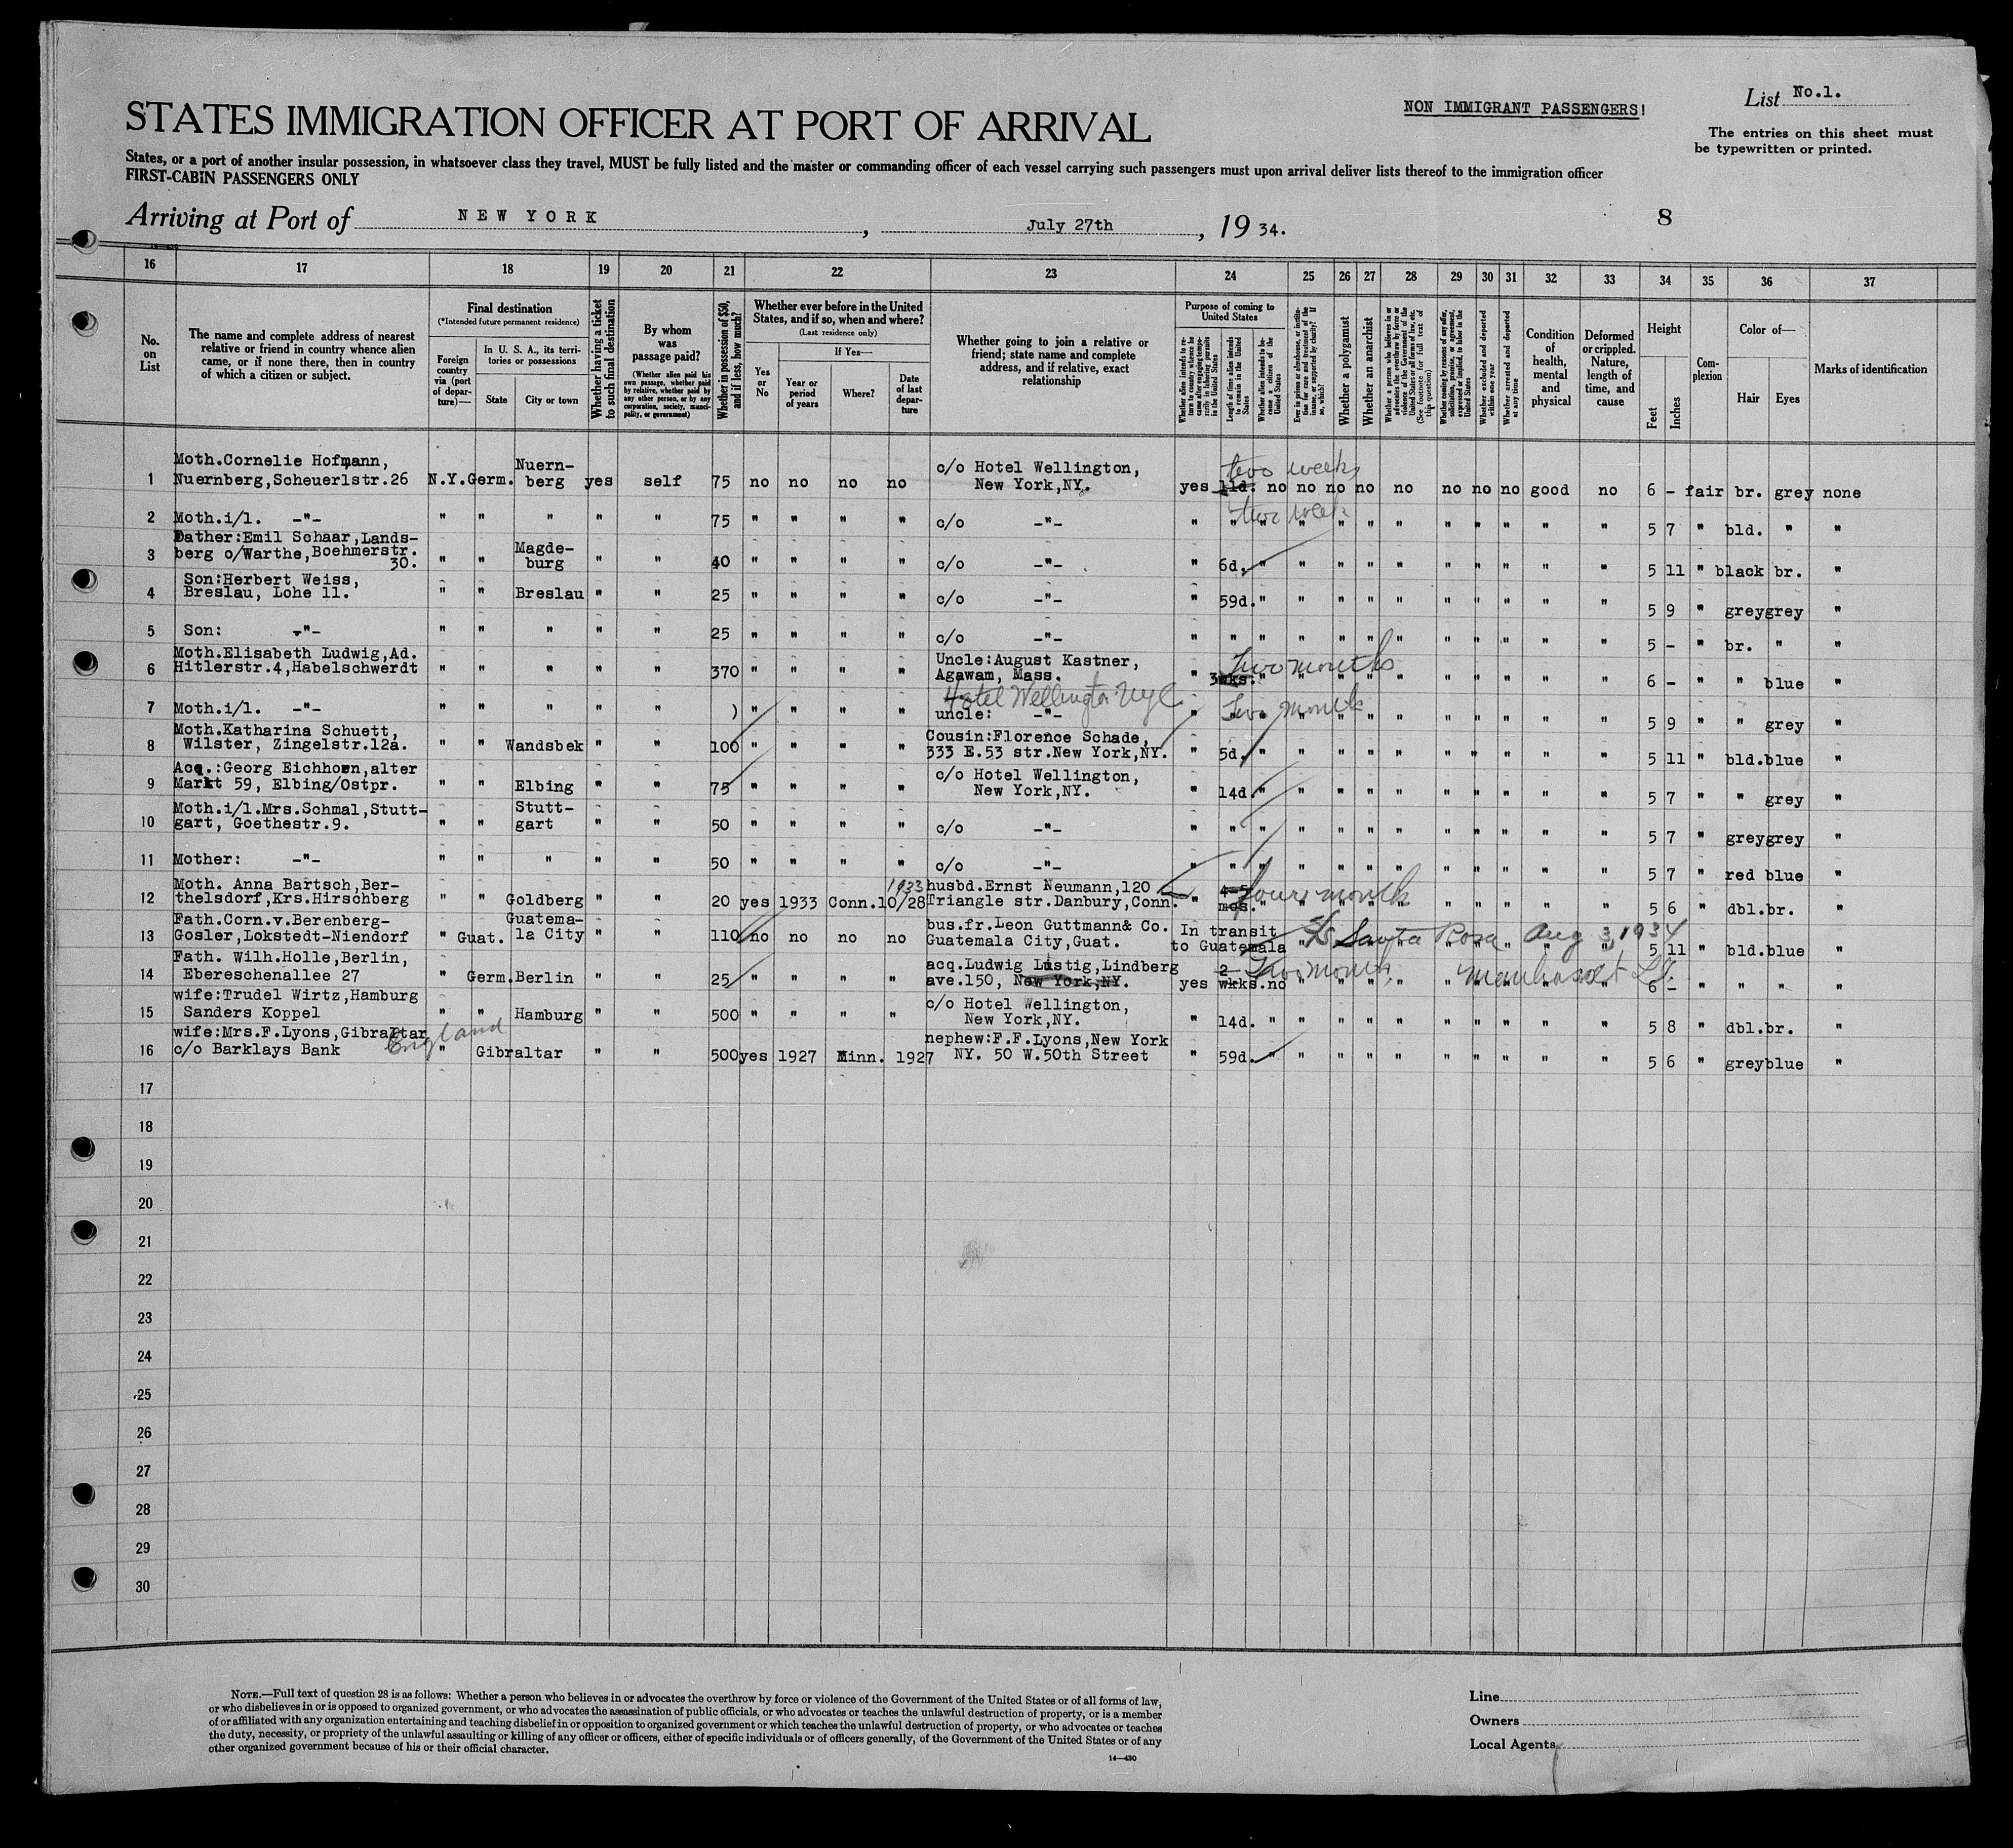 STATES IMMIGRATION OFFICER AT PORT OF ARRIVAL
NON IMMIGRANT PASSENGERS!
List No.1.
The entries on this sheet must
be typewritten or printed.
States, or a port of another insular possession, in whatsoever class they travel, MUST be fully listed and the master or commanding officer of each vessel carrying such passengers must upon arrival deliver lists thereof to the immigration officer
FIRST-CABIN PASSENGERS ONLY
Arriving at Port of NEW YORK, July 27th, 1934.
8
16 17 18 19 20 21 22 23 24 25 26 27 28 29 30 31 32 33 34 35 36 37
No. on List
The name and complete address of nearest
relative or friend in country whence alien
came, or if none there, then in country
of which a citizen or subject.
Final destination
(*Intended future permanent residence)
Foreign country via (port of departure)—
In U. S. A., its territories or possessions
State
City or town
Whether having a ticket to such final destination
By whom was passage paid?
(Whether alien paid his own passage, whether paid by relative, whether paid by any other person, or by any corporation, society, municipality, or government)
Whether in possession of $50, and if less, how much?
Whether ever before in the United States, and if so, when and where?
(Last residence only)
Yes or No
If Yes—
Year or period of years
Where?
Date of last departure
Whether going to join a relative or
friend; state name and complete
address, and if relative, exact
relationship
Purpose of coming to United States
Length of time alien intends to remain in the United States
Whether alien intends to become a citizen of the United States
Whether a polygamist
Whether an anarchist
Whether excluded and deported within one year
Whether arrested and deported at any time
Condition of health, mental and physical
Deformed or crippled. Nature, length of time, and cause
Height
Feet
Inches
Complexion
Color of—
Hair
Eyes
Marks of identification
1 Moth.Cornelie Hofmann,
Nuernberg,Scheuerlstr.26 N.Y. Germ. Nuernberg yes self 75 no no no no c/o Hotel Wellington,
New York,NY. yes 11d. two weeks no no no no no no no no good no 6 - fair br. grey none
2 Moth.i/l. -"- " " " " " 75 " " " " c/o -"- " " two week " " " " " " " " " " 5 7 " bld. " "
3 Father:Emil Schaar,Lands-
berg o/Warthe,Boehmerstr.
30. " " Magdeburg " " 40 " " " " c/o -"- " 6d. " " " " " " " " " " 5 11 " black br. "
4 Son:Herbert Weiss,
Breslau, Lohe 11. " " Breslau " " 25 " " " " c/o -"- " 59d. " " " " " " " " " " 5 9 " grey grey "
5 Son: -"- " " " " " 25 " " " " c/o -"- " " " " " " " " " " " " 5 - " br. " "
6 Moth.Elisabeth Ludwig,Ad.
Hitlerstr.4,Habelschwerdt " " " " " 370 " " " " Uncle:August Kastner,
Agawam, Mass. " 3wks. Two months " " " " " " " " " " 6 - " " blue "
Hotel Wellington NYC
7 Moth.i/l. -"- " " " " " ) " " " " uncle: -"- " Two months " " " " " " " " " 5 9 " " grey "
8 Moth.Katharina Schuett,
Wilster, Zingelstr.12a. " " Wandsbek " " 100 " " " " Cousin:Florence Schade,
333 E.53 str.New York,NY. " 5d. " " " " " " " " " " 5 11 " bld. blue "
9 Acq.:Georg Eichhorn,alter
Markt 59, Elbing/Ostpr. " " Elbing " " 75 " " " " c/o Hotel Wellington,
New York,NY. " 14d. " " " " " " " " " " 5 7 " " grey "
10 Moth.i/l.Mrs.Schmal,Stutt-
gart, Goethestr.9. " " Stuttgart " " 50 " " " " c/o -"- " " " " " " " " " " " " 5 7 " grey grey "
11 Mother: -"- " " " " " 50 " " " " c/o -"- " " " " " " " " " " " " 5 7 " red blue "
12 Moth. Anna Bartsch,Ber-
thelsdorf,Krs.Hirschberg " " Goldberg " " 20 yes 1933 Conn. 1933 10/28 husbd.Ernst Neumann,120
Triangle str.Danbury,Conn. " 4-5 mos. four months " " " " " " " " " " 5 6 " dbl. br. "
13 Fath.Corn.v.Berenberg-
Gosler,Lokstedt-Niendorf " Guat. Guatemala City " " 110 no no no no bus.fr.Leon Guttmann& Co.
Guatemala City,Guat. In transit
to Guatemala S/S Santa Rosa Aug 3, 1934 5 11 " bld. blue "
14 Fath. Wilh.Holle,Berlin,
Ebereschenallee 27 Germ. Berlin " " 25 " " " " acq.Ludwig Lustig,Lindberg
ave.150, New York,NY. yes 2 wkks. Two months no " " " " Manhasset L.I. 6 - " " " "
15 wife:Trudel Wirtz,Hamburg
Sanders Koppel " " Hamburg " " 500 " " " " c/o Hotel Wellington,
New York,NY. " 14d. " " " " " " " " " " 5 8 " dbl. br. "
16 wife:Mrs.F.Lyons,Gibraltar
c/o Barklays Bank England " Gibraltar " " 500 yes 1927 Minn. 1927 nephew:F.F.Lyons,New York
NY. 50 W.50th Street " 59d. " " " " " " " " " " 5 6 " grey blue "
17
18
19
20
21
22
23
24
25
26
27
28
29
30
NOTE.—Full text of question 28 is as follows: Whether a person who believes in or advocates the overthrow by force or violence of the Government of the United States or of all forms of law,
or who disbelieves in or is opposed to organized government, or who advocates the assassination of public officials, or who advocates or teaches the unlawful destruction of property, or is a member
of or affiliated with any organization entertaining and teaching disbelief in or opposition to organized government or which teaches the unlawful destruction of property, or who advocates or teaches
the duty, necessity, or propriety of the unlawful assaulting or killing of any officer or officers, either of specific individuals or of officers generally, of the Government of the United States or of any
other organized government because of his or their official character.
14—430
Line
Owners
Local Agents